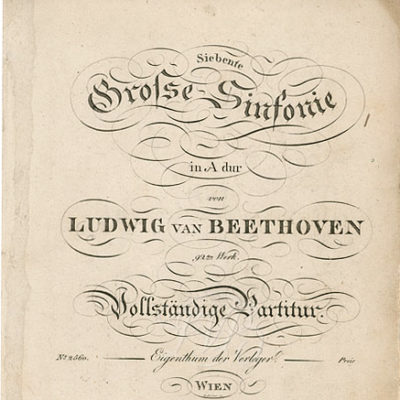 Siebente
Grosse Sinfonie
in A dur
von
LUDWIG VAN BEETHOVEN
92tes Werk.
Vollständige Partitur.
No 2560. Eigenthum der Verleger. Preis
WIEN